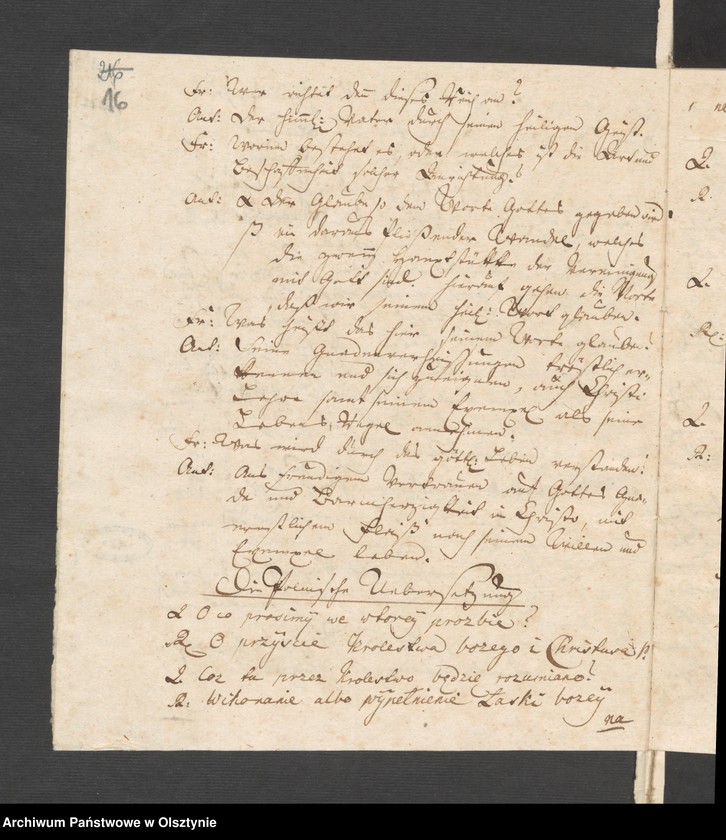 26
16
Fr: Wer richtet den dieses Reich an?
Ant: Der himl: Vater durch seinen heiligen Geist.
Fr: Worin bestehet es, oder welches ist die Art und
Beschaffenheit solcher Anrichtung?
Ant: Der Glaube so dem Worte Gottes gegeben wird
ist ein daraus fließender Wandel, welches
die zwey Hauptstütke der Vereinigung
mit Gott sind. hierauf gehen die Worte
daß wir seinem heil: Wort glauben.
Fr: Was heist das hier seinem Worte glauben?
Ant: Seine Gnadenverheissungen tröstlich er-
kennen und sich zueignen, auch Christi
Lehre samt seinem Exempel als seine
Lebens-Regel annehmen.
Fr: Was wird durch das göttl: Leben verstanden?
Ant: Aus freudigem Vertrauen auf Gottes Gna-
de und Barmherzigkeit in Christo, mit
ernstlichem Fleiß nach seinem Willen und
Exempel leben.
Die Polnische Uebersetzung
Q O co prosimy we wtorey prozbie?
R O przyście Krolestwa bozego i Christusa P.
Q Coz tu przez Krolestwo będzie rozumiano?
R: Wikonanie albo wypełnienie Łaski bozey
na
Archiwum Państwowe w Olsztynie